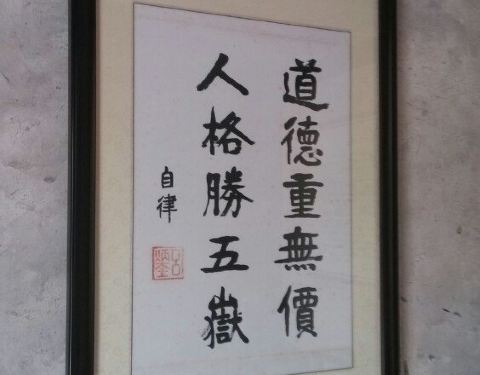 道德重無價
人格勝五嶽
自律